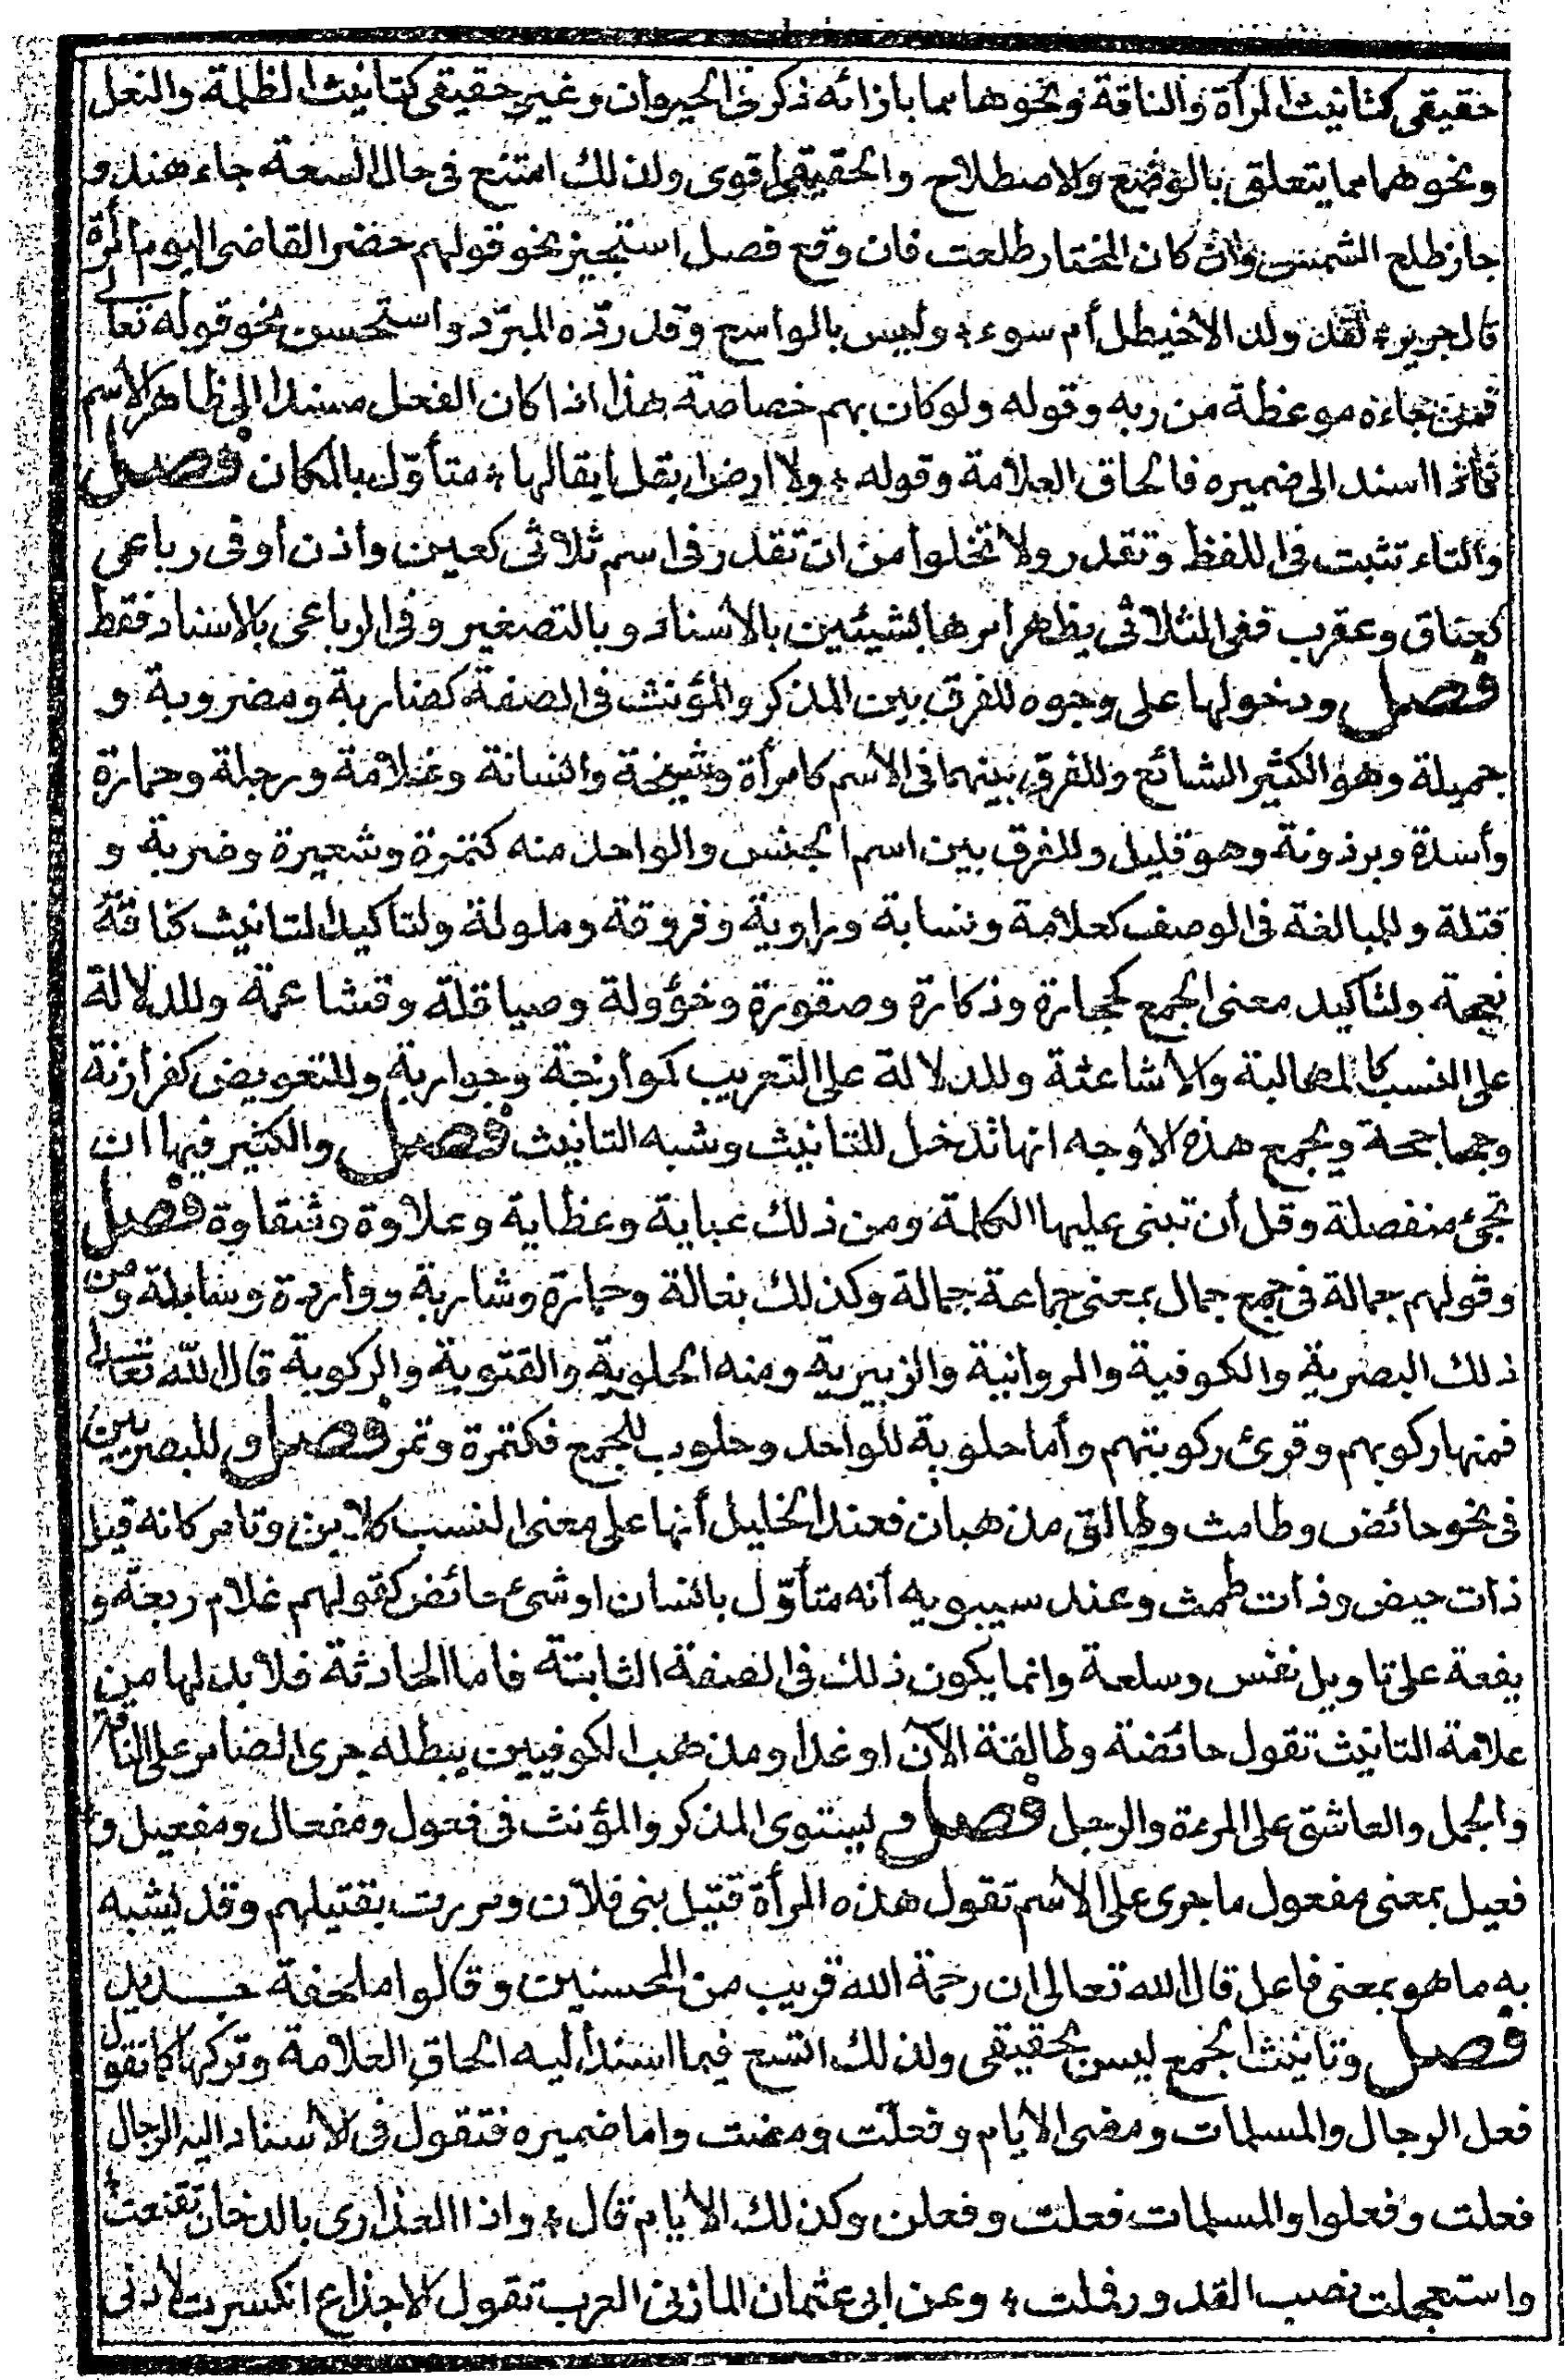 حقيقى كتأنيث المرأة والناقة ونحوهما مما بازائه ذكر فى الحيوان وغير حقيقى كتأنيث الظلمة والنعل
ونحوهما مما يتعلق بالوضع والاصطلاح والحقيقى أقوى ولذلك امتنع فى حال السعة جاء هند و
جاز طلع الشمس وان كان المختار طلعت فان وقع فصل استجيز نحو قولهم حضر القاضى اليوم امرأة
قال جرير؛ لقد ولد الأخيطل أم سوء؛ وليس بالواسع وقد ردّه المبرّد واستحسن نحو قوله تعالى
فمن جاءه موعظة من ربه وقوله ولو كان بهم خصاصة هذا اذا كان الفعل مسندا الى ظاهر الأسم
فأذا اسند الى ضميره فالحاق العلامة وقوله؛ ولا ارض ابقل ابقالها؛ متأوّل بالمكان فصل
والتاء تثبت فى اللفظ وتقدر ولا تخلوا من ان تقدر فى اسم ثلاثى كعين وأذن أو فى رباعى
كعناق وعقرب ففى الثلاثى يظهر امرها بشيئين بالأسناد وبالتصغير وفى الرباعى بالاسناد فقط
فصل ودخولها على وجوه للفرق بين المذكر والمؤنث فى الصفة كضاربة ومضروبة و
جميلة وهو الكثير الشائع وللفرق بينهما فى الأسم كامرأة وشيخة وانسانة وغلامة ورجلة وحمارة
وأسدة وبرذونة وهو قليل وللفرق بين اسم الجنس والواحد منه كتمرة وشعيرة وضربة و
قتلة وللمبالغة فى الوصف كعلامة ونسابة وراوية وفروقة وملولة ولتاكيد التانيث كناقة
نعجة ولتاكيد معنى الجمع كحجارة وذكارة وصقورة وخؤولة وصياقلة وقشاعمة وللدلالة
على النسب كالمهالبة والأشاعثة وللدلالة على التعريب كموازجة وجواربة وللتعويض كفرازنة
وجحاجحة ويجمع هذه الأوجه انها تدخل للتانيث وشبه التانيث فصل والكثير فيها ان
تجئ منفصلة وقل أن تبنى عليها الكلمة ومن ذلك عباية وعظاية وعلاوة وشقاوة فصل
وقولهم جمالة فى جمع جمال بمعنى جماعة جمالة وكذلك بغالة وحمارة وشاربة وواردة وسابلة ومن
ذلك البصرية والكوفية والمروانية والزبيرية ومنه الحلوبة والقتوبة والركوبة قال الله تعالى
فمنها ركوبهم وقرئ ركوبتهم وأما حلوبة للواحد وحلوب للجمع فكتمرة وتمر فصل وللبصريين
فى نحو حائض وطامث وطالق مذهبان فعند الخليل أنها على معنى النسب كلابن وتامر كانه قيل
ذات حيض وذات طمث وعند سيبويه أنه متأوّل بانسان او شئ حائض كقولهم غلام ربعة و
يفعة على تاويل نفس وسلعة وانما يكون ذلك فى الصفة الثابتة فاما الحادثة فلا بد لها من
علامة التانيث تقول حائضة وطالقة الآن او غدا ومذهب الكوفيين يبطله جرى الضامر على الناقة
والجمل والعاشق على المرءة والرجل فصل ويستوى المذكر والمؤنث فى فعول ومفعال ومفعيل و
فعيل بمعنى مفعول ما جرى على الاسم تقول هذه المرأة قتيل بنى فلان ومررت بقتيلهم وقد يشبه
به ما هو بمعنى فاعل قال الله تعالى ان رحمة الله قريب من المحسنين وقالوا ملحفة جديد
فصل وتانيث الجمع ليس بحقيقى ولذلك اتسع فيما اسند أليه الحاق العلامة وتركها كما تقول
فعل الرجال والمسلمات ومضى الايام وفعلت ومضت واما ضميره فتقول فى لأسناد اليه الرجال
فعلت وفعلوا والمسلمات فعلت وفعلن وكذلك الايام قال؛ واذا العذارى بالدخان تقنعت
واستعجلت نصب القدور فملت؛ وعن ابى عثمان المازنى العرب تقول الاجذاع انكسرت لأدنى